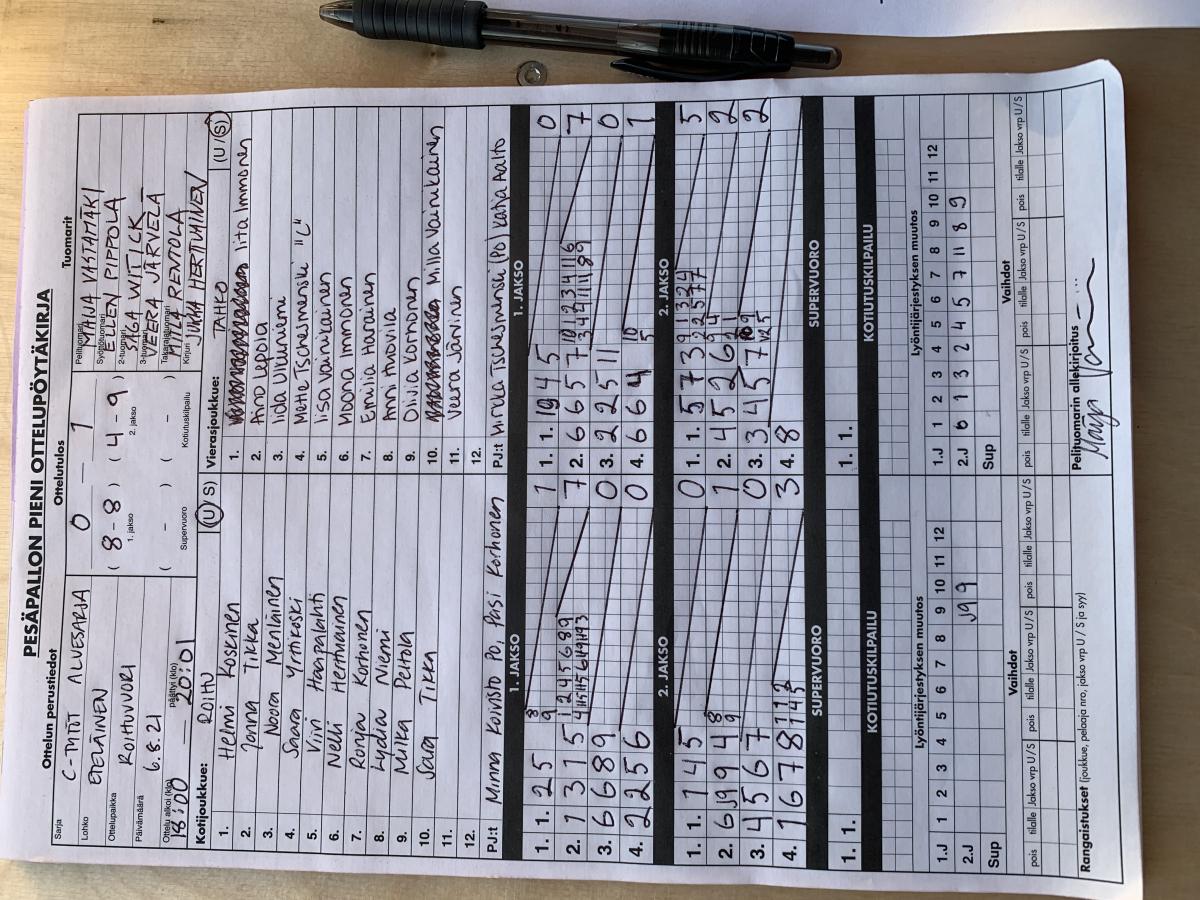 PESÄPALLON PIENI OTTELUPÖYTÄKIRJA
Ottelun perustiedot
Ottelutulos
Tuomarit
Sarja C-TYTÖT ALUESARJA
Lohko ETELÄINEN
Ottelupaikka ROIHUVUORI
Päivämäärä 6.8.21
Ottelu alkoi (klo) 18:00 päättyi (klo) 20:01
0 – 1
( 8 - 8 ) ( 4 - 9 )
1. jakso 2. jakso
( - ) ( - )
Supervuoro Kotiutuskilpailu
Pelituomari MAIJA VASTAMÄKI
Syöttötuomari ELLEN PIPPOLA
2-tuomari SAGA WITICK
3-tuomari VEERA JÄRVELÄ
Takarajatuomari MIILA RENTOLA
Kirjuri JUKKA HERTTUAINEN
Kotijoukkue: ROIHU (U / S)
1. Helmi Koskinen
2. Jonna Tikka
3. Noora Meriläinen
4. Saara Yrttikoski
5. Viivi Haapalahti
6. Nelli Herttuainen
7. Ronja Korhonen
8. Lydia Niemi
9. Milka Peltola
10. Saara Tikka
11.
12.
PJ:t Minna Koivisto Po, Pasi Korhonen
Vierasjoukkue: TAHKO (U / S)
1. Iita Immonen
2. Aino Lepola
3. Iida Ulliniemi
4. Mette Tschesmenski "C"
5. Iisa Vainikainen
6. Moona Immonen
7. Emilia Harainen
8. Anni Hovila
9. Olivia Kornonen
10. Milla Vainikainen
11. Veera Järvinen
12.
PJ:t Mirkka Tschesmenski (Po) Katja Aalto
1. JAKSO
1. 1. 2 5 8 9 1
2. 1 3 1 5 7
3. 6 6 8 9 0
4. 2 2 5 6 0
2. JAKSO
1. 1. 1 4 5 0
2. 6 J9 9 4 8 9 1
3. 4 5 6 7 0
4. 1 6 7 8 3
SUPERVUORO
1. 1.
KOTIUTUSKILPAILU
1. JAKSO
1. 1. 10 4 5 0
2. 6 6 5 7 7
3. 2 2 5 11 0
4. 6 6 4 10 5 1
2. JAKSO
1. 1. 5 7 3 5
2. 4 5 2 6 2
3. 4 5 7 2
4. 8
SUPERVUORO
1. 1.
KOTIUTUSKILPAILU
Lyöntijärjestyksen muutos
1.J 1 2 3 4 5 6 7 8 9 10 11 12
2.J J9 9
Sup
Vaihdot
pois tilalle Jakso vrp U / S pois tilalle Jakso vrp U / S pois tilalle Jakso vrp U / S
Lyöntijärjestyksen muutos
1.J 1 2 3 4 5 6 7 8 9 10 11 12
2.J 6 1 3 2 4 5 7 11 8 9
Sup
Vaihdot
pois tilalle Jakso vrp U / S pois tilalle Jakso vrp U / S pois tilalle Jakso vrp U / S
Rangaistukset (joukkue, pelaaja nro, jakso vrp U / S ja syy)
Pelituomarin allekirjoitus
Maija